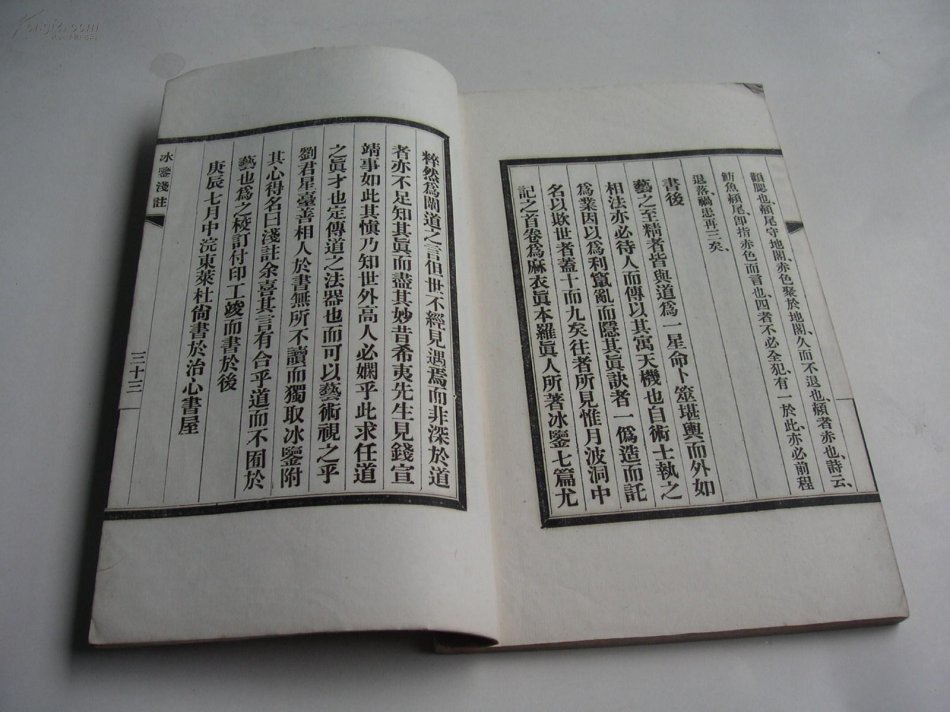 顋腮也、頰尾守地閣、赤色聚於地閣、久而不退也、頳者赤也、詩云、
魴魚頳尾、卽指赤色而言也、四者不必全犯、有一於此、亦必前程
退落禍患再三矣、
書後
藝之至精者皆與道爲一星命卜筮堪輿而外如
相法亦必待人而傳以其寓天機也自術士執之
爲業因以爲利竄亂而隱其眞訣者一僞造而託
名以欺世者蓋十而九矣往者所見惟月波洞中
記之首卷爲麻衣眞本羅眞人所著冰鑒七篇尤
粹然爲聞道之言但世不經見遇焉而非深於道
者亦不足知其眞而盡其妙昔希夷先生見錢宣
靖事如此其愼乃知世外高人必嫻乎此求任道
之眞才也定傳道之法器也而可以藝術視之乎
劉君星臺善于相人於書無所不讀而獨取冰鑒附
其心得名曰淺註余喜其言有合乎道而不囿於
藝也爲之校訂付印工竣而書於後
庚辰七月中浣東萊杜尙書於治心書屋
冰鑒淺註
三十三